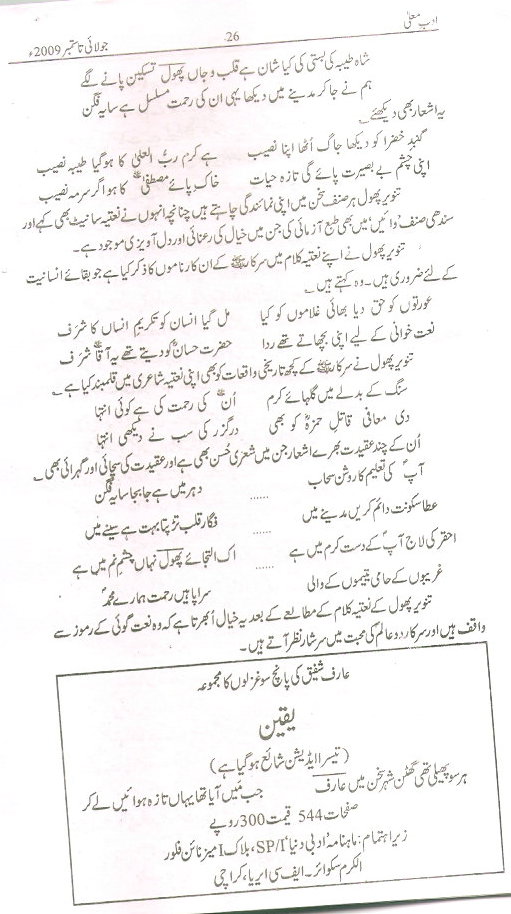 ادب معلیٰ
26
جولائی تا ستمبر 2009ء
شاہ طیبہ کی بستی کی کیا شان ہے قلب و جاں پھول تسکین پانے لگے
ہم نے جا کر مدینے میں دیکھا یہی ان کی رحمت مسلسل ہے سایہ فگن
یہ اشعار بھی دیکھئے
گنبدِ خضرا کو دیکھا جاگ اُٹھا اپنا نصیب ہے کرم ربُّ العلیٰ کا ہو گیا طیبہ نصیب
اپنی چشمِ بے بصیرت پائے گی تازہ حیات خاک پائے مصطفیٰؐ کا ہو اگر سرمہ نصیب
تنویر پھول ہر صنف سخن میں اپنی نمائندگی چاہتے ہیں چنانچہ انہوں نے نعتیہ سانیٹ بھی کہے اور
سندھی صنف ’وائیں‘ میں بھی طبع آزمائی کی جن میں خیال کی رعنائی اور دل آویزی موجود ہے۔
تنویر پھول نے اپنے نعتیہ کلام میں سرکار ﷺ کے ان کارناموں کا ذکر کیا ہے جو بقائے انسانیت
کے لئے ضروری ہیں۔ وہ کہتے ہیں
عورتوں کو حق دیا بھائی غلاموں کو کیا مل گیا انسان کو تکریمِ انساں کا شرف
نعت خوانی کے لیے اپنی بچھاتے تھے ردا حضرت حسانؓ کو دیتے تھے یہ آقاؐ شرف
تنویر پھول نے سرکار ﷺ کے کچھ تاریخی واقعات کو بھی اپنی نعتیہ شاعری میں قلمبند کیا ہے
سنگ کے بدلے میں گلہائے کرم اُنؐ کی رحمت کی ہے کوئی انتہا
دی معافی قاتلِ حمزہؓ کو بھی درگزر کی سب نے دیکھی انتہا
اُن کے چند عقیدت بھرے اشعار جن میں شعری حُسن بھی ہے اور عقیدت کی سچائی اور گہرائی بھی
آپؐ کی تعلیم کا روشن سحاب دہر میں ہے جا بجا سایہ فگن
......
عطا سکونت دائم کریں مدینے میں فگار قلب تڑپتا بہت ہے سینے میں
......
احقر کی لاج آپؐ کے دست کرم میں ہے اک التجائے پھول نہاں چشمِ نم میں ہے
......
غریبوں کے حامی یتیموں کے والی سراپا ہیں رحمت ہمارے محمدؐ
تنویر پھول کے نعتیہ کلام کے مطالعے کے بعد یہ خیال اُبھرتا ہے کہ وہ نعت گوئی کے رموز سے
واقف ہیں اور سرکار دو عالم کی محبت میں سرشار نظر آتے ہیں۔
عارف شفیق کی پانچ سو غزلوں کا مجموعہ
یقین
(تیسرا ایڈیشن شائع ہو گیا ہے)
ہر سو پھیلی تھی گھٹن شہرِ سخن میں عارف جب میں آیا تھا یہاں تازہ ہوائیں لے کر
صفحات 544 قیمت 300 روپے
زیرِ اہتمام: ماہنامہ ’ادبی دنیا‘ SP/I، بلاک I میز نائن فلور
الکرم سکوائر۔ ایف سی ایریا، کراچی